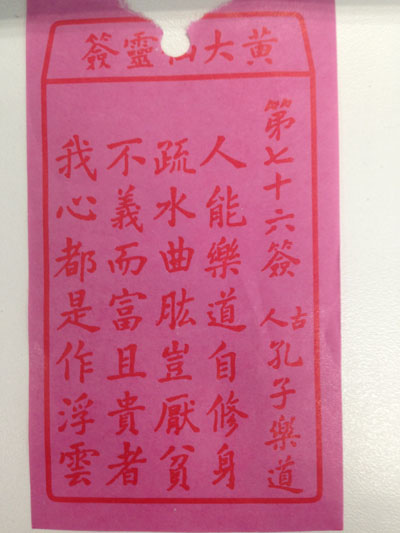 黃大仙靈簽
第七十六簽 古人孔子樂道
人能樂道自修身
疏水曲肱豈厭貧
不義而富且貴者
我心都是作浮雲